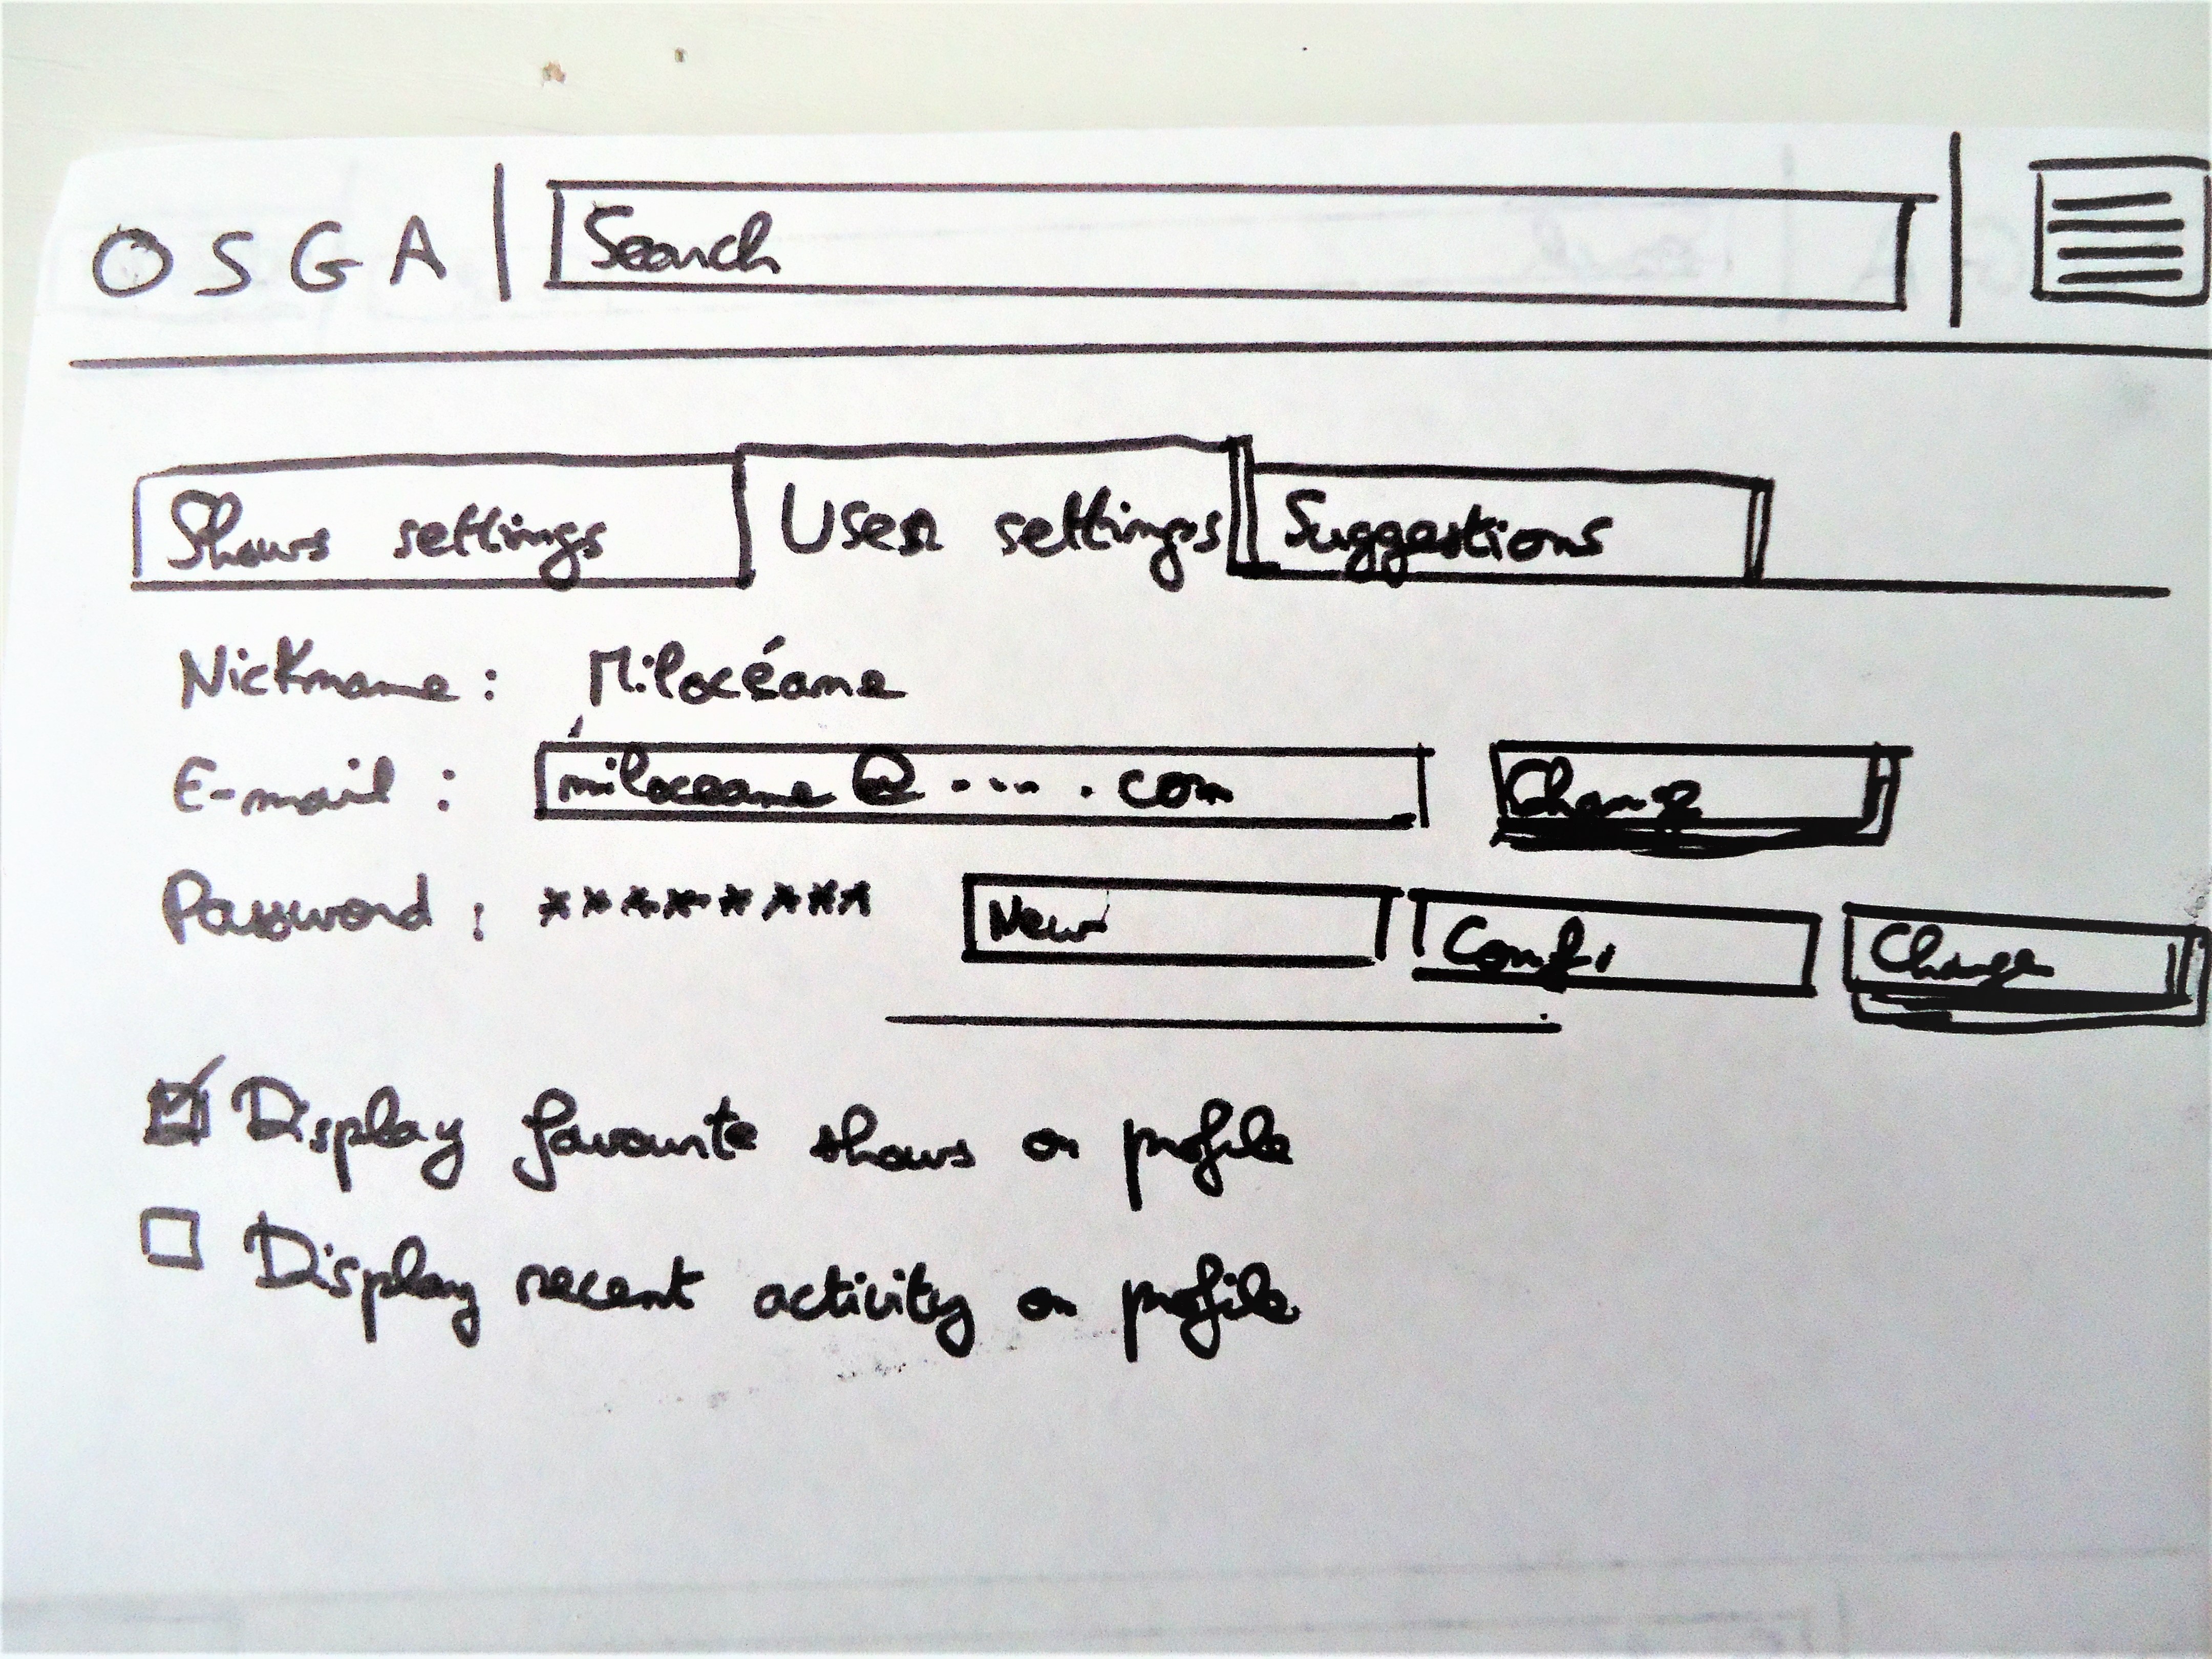 OSGA Search
Shows settings User settings Suggestions
Nickname : Milocéane
E-mail : miloceane@....com Change
Password : ********* New Confi Change
Display favourite shows on profile
Display recent activity on profile